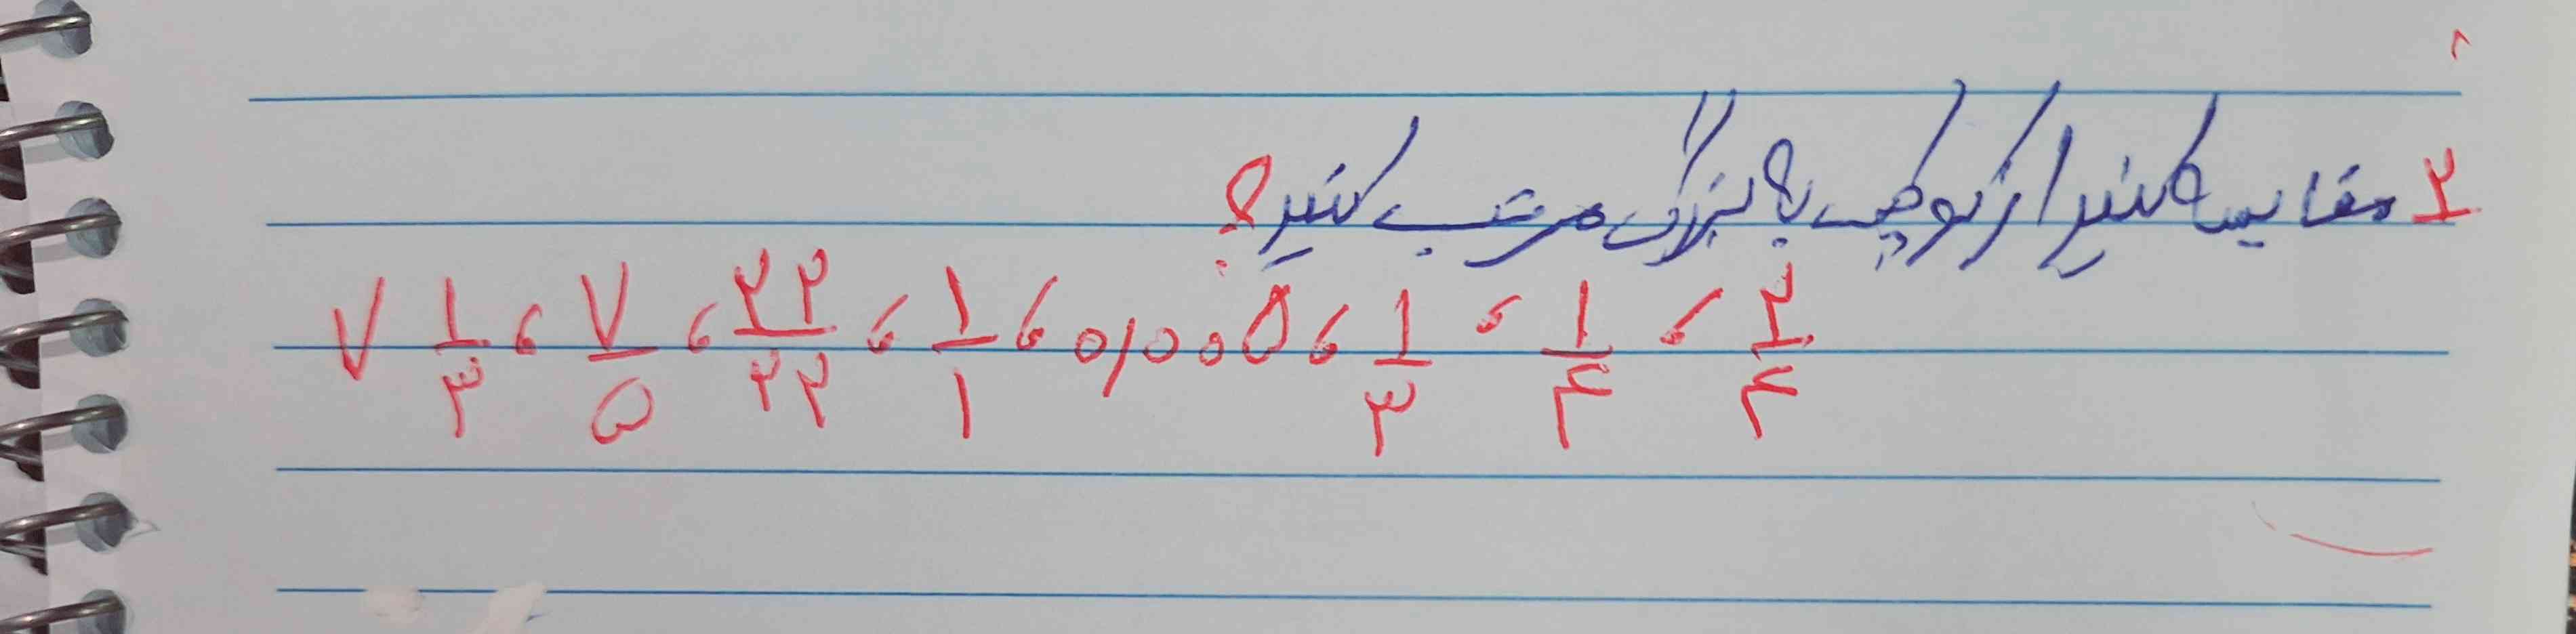 ۲ مقایسه کنید از کوچک به بزرگ مرتب کنید؟
۳/۴ ، ۱/۴ ، ۱/۳ ، ۰/۰۰۵ ، ۱/۱ ، ۲۳/۲۳ ، ۷/۵ ، ۷ ۱/۳